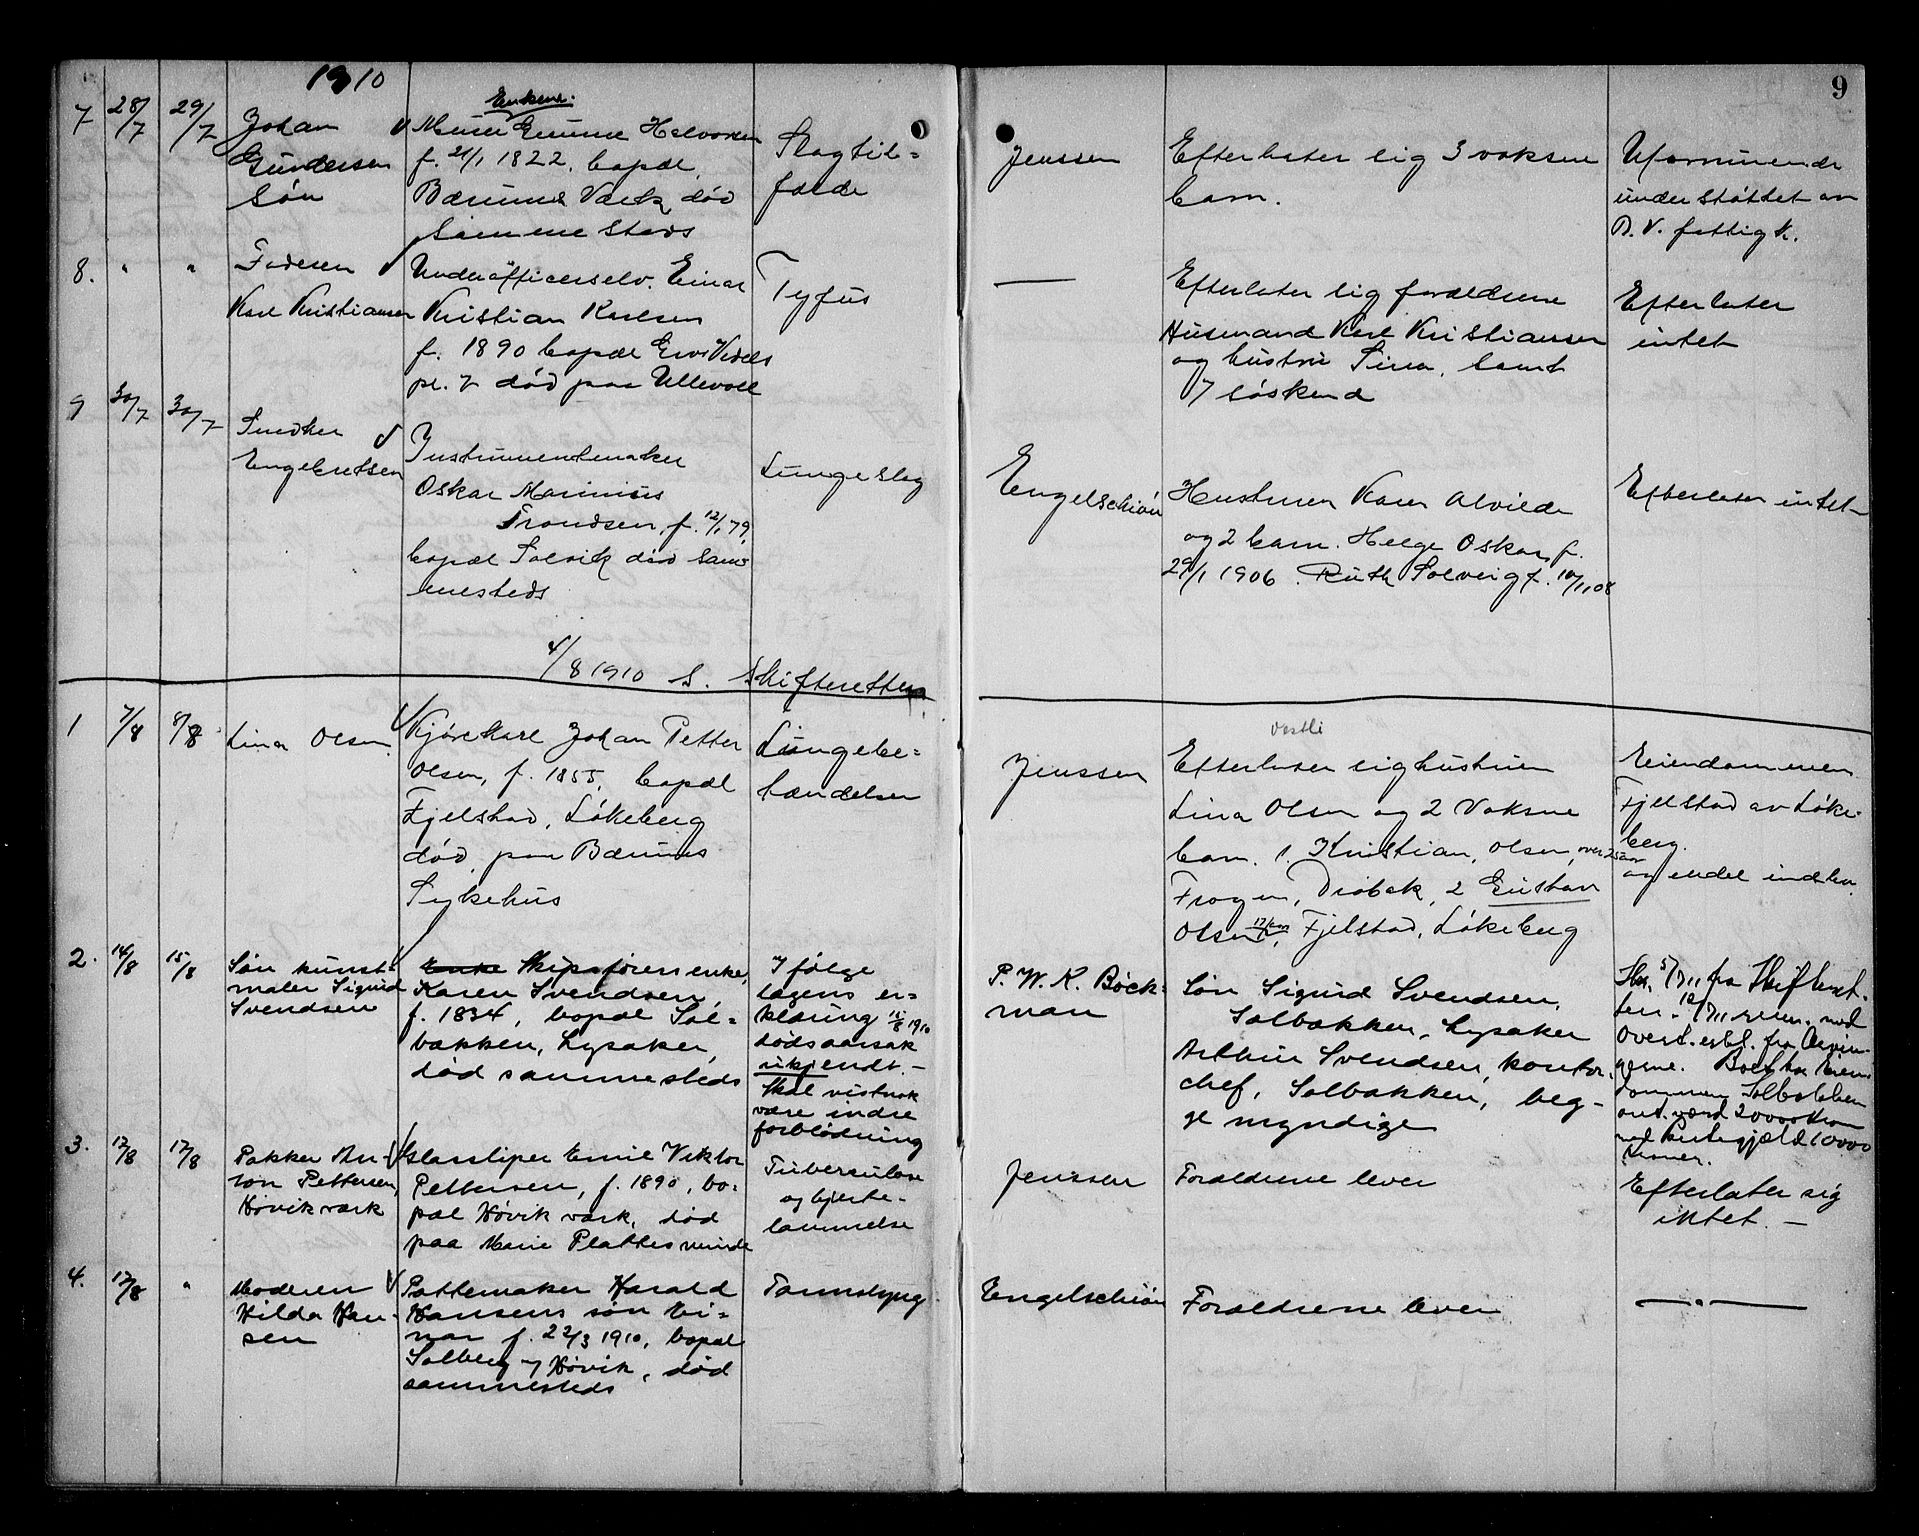 1910
9
7 28/7 29/7
Johan
Gundersen
Søn
Enkene.
Gunne Halvorsen
f. 21/1 1822. bopæl
Bærums Værk, død
samme steds
Slagtil=
fælde
Jenssen
Efterlater sig 3 voksne
barn.
Uformuende
understøttet av
B. V. fattigk.
8. " "
Faderen
Karl Kristiansen
Underofficerselv. Einar
Kristian Karlsen
f. 1890 bopæl
pl. 7 død paa Ullevaal
Tyfus
—
Efterlater sig forældrene
Husmand Karl Kristiansen
og hustru Sina, samt
7 søskend
Efterlater
intet
9 30/7 30/7
Snedker
Engebretsen
Instrumentmaker
Oskar Marinius
Trondsen, f. 12/1 79,
bopæl Solvik død sam
mesteds
Lungeslag
Engelschiøn
Hustruen Karen Alvilde
og 2 barn. Helge Oskar, f.
29/1 1906. Ruth Solveig f. 10/11 08
Efterlater intet
4/8 1910 S. Skifteretten
1 7/8 8/8
Lina Olsen
Kjørekarl Johan Petter
Olsen, f. 1855, bopæl
Fjelstad, Løkeberg
død paa Bærums
Sykehus
Lungebe=
tændelse
Jenssen
vestli
Efterlater sig hustruen
Lina Olsen og 2 voksne
barn. 1. Kristian Olsen, over 25 aar
Frogn, Drøbak, 2 Gustav
Olsen, Fjelstad, Løkeberg
Eiendommen
Fjelstad av Løke-
berg.
og endel indbo.
2. 14/8 15/8
Søn kunst-
maler Sigurd
Svendsen
Enke Skipsførerenke
Karen Svendsen,
f. 1834, bopæl Sol=
bakken, Lysaker,
død sammesteds
Ifølge
lægens er=
klæring 15/8 1910
dødsaarsak
ukjendt.-
Skal vistnok
være indre
forblødning
P. W. K. Bøck=
man
Søn Sigurd Svendsen,
Solbakken, Lysaker
Arthur Svendsen, kontor-
chef, Solbakken, beg-
ge myndige
Skr. 5/7 11 fra Skifteret-
ten. 12/7 11 med
fra Arvin-
gerne. Boet har Eien-
dommen Solbakken
ant. værd 20000 Kron
med Pantegjæld 10000
Kroner.
3. 17/8 17/8
Pakker An-
ton Pettersen,
Høvik værk
Glassliper Emil Viktor
Pettersen, f. 1890, bo-
pæl Høvik værk, død
paa Marie Plathes minde
Tuberculose
og hjerte-
lammelse
Jenssen
Forældrene lever
Efterlater sig
intet. —
4. 17/8 "
Moderen
Hilda Han-
sen
Pottemaker Harald
Hansens søn Ei=
nar f. 22/3 1910, bopæl
Solberg, Høvik, død
sammesteds
Tarmslyng
Engelschiøn
Forældrene lever
— " —